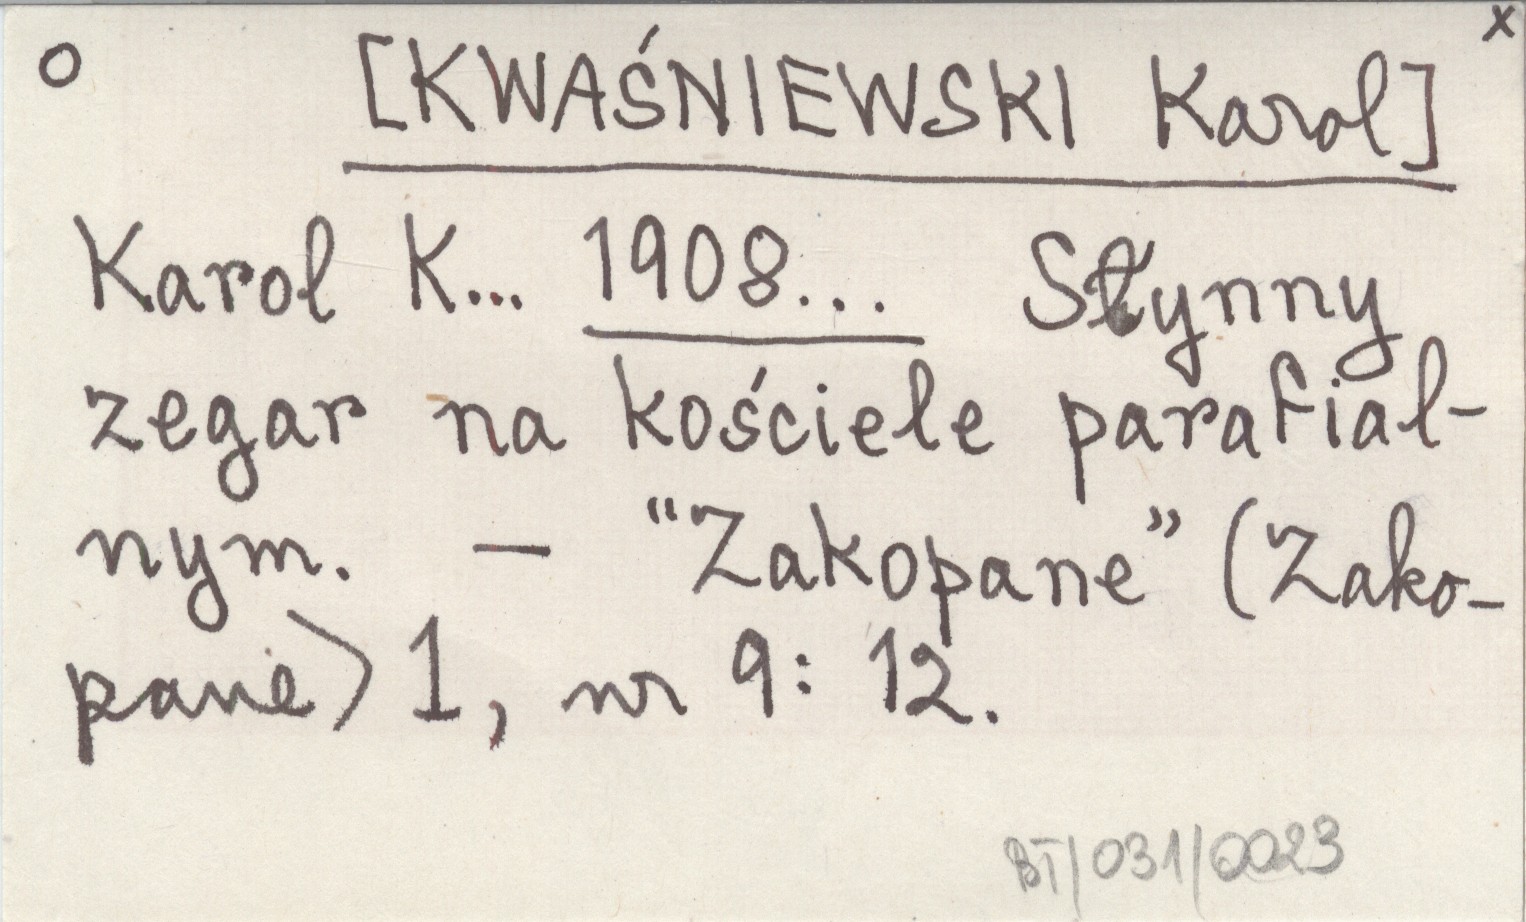 O x
[KWAŚNIEWSKI Karol]
Karol K... 1908... Słynny
zegar na kościele parafial-
nym. – "Zakopane" (Zako-
pane) 1, nr 9: 12.
BT/031/0023